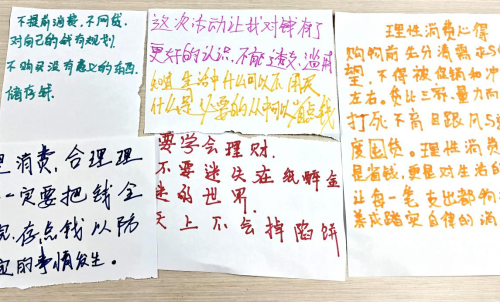 不提前消费,不网贷
对自己的钱有规划.
不购买没有意义的东西.
储存钱.
这次活动让我对钱有了
更好的认识,不能透支、滥用
知道生活中什么可以不用买
什么是必要的从中可以省点钱
理性消费心得
购物前先分清需求与
望,不得被促销和冲
左右。货比三家,量力而
打死不高目跟风与
度囤货。理性消费
是省钱,更是对生活的
让每一笔支出都物
养成踏实自律的消
理消费,合理理
一定要把钱全
完,存点钱以防
定的事情发生。
要学会理财.
不要迷失在纸醉金
迷的世界.
天上不会掉陷饼